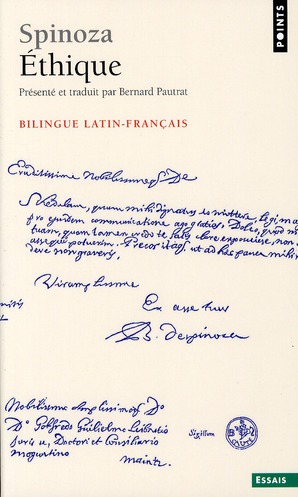 Spinoza
Éthique
Présenté et traduit par Bernard Pautrat
POINTS
BILINGUE LATIN-FRANÇAIS
Eruditissime Nobilissimeque De
quam mihi dignatus es mittere, legi
pro ejusdem communicatione
tuam, quam tamen credo te satis clare exposuisse, non
asse que potuerim. Precor itaque ut ad haec pauca mihi
ne graveris
Vir amplissime
Ex asse tuus
B. despinoza
Nobilissimo Amplissimoque Do
Do Gottfredo Guilielmo Leibnitio
Juris u. Doctori et Consiliario
Moguntino
maintz
Sigillum
CAUTE
ESSAIS